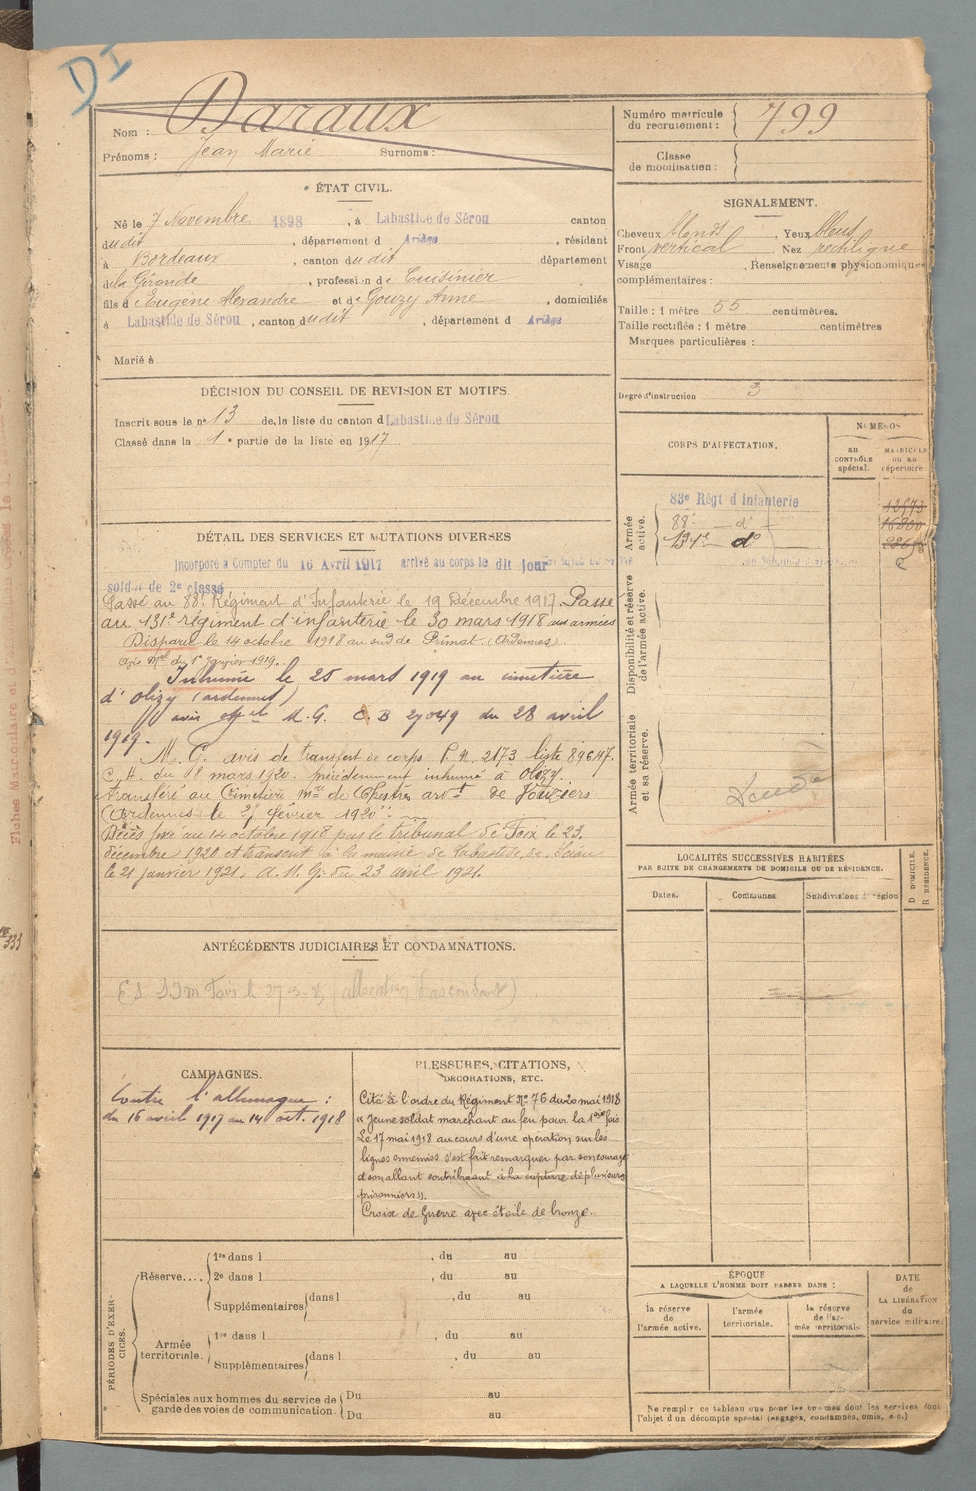 DI
Nom : Daraux
Prénoms : Jean Marie Surnoms :
Numéro matricule du recrutement : 799
Classe de mobilisation :
ÉTAT CIVIL.
Né le 7 Novembre 1898, à Labastide de Sérou canton
dudit, département d Ariège, résidant
à Bordeaux, canton dudit département
de la Gironde, profession de Cuisinier
fils d'Eugène Alexandre et de Gouzy Anne, domiciliés
à Labastide de Sérou, canton dudit, département d Ariège
Marié à
SIGNALEMENT.
Cheveux blonds, Yeux bleus
Front vertical Nez rectiligne
Visage, Renseignements physionomiques
complémentaires :
Taille : 1 mètre 55 centimètres.
Taille rectifiée : 1 mètre centimètres
Marques particulières :
Degré d'instruction 3
DÉCISION DU CONSEIL DE REVISION ET MOTIFS.
Inscrit sous le n° 13 de la liste du canton d Labastide de Sérou
Classé dans la 1e partie de la liste en 1917
CORPS D'AFFECTATION.
NUMÉROS
AU CONTRÔLE spécial.
MATRICULE OU AU répertoire
Armée active.
83e Régt d'Infanterie
88e — d°
131e d° —
Disponibilité et réserve de l'armée active.
Armée territoriale et sa réserve.
DÉTAIL DES SERVICES ET MUTATIONS DIVERSES
Incorporé à compter du 16 Avril 1917 arrivé au corps le dit jour
soldat de 2e classe
Passé au 88e Régiment d'Infanterie le 19 Décembre 1917. Passé
au 131e régiment d'infanterie le 30 mars 1918 aux armées
Disparu le 14 octobre 1918 au sud de Primat (Ardennes).
Avis Mel du 1er Janvier 1919.
Inhumé le 25 mars 1919 au cimetière
d'Olizy (ardennes)
avis offel M.G. C.B 27049 du 28 avril
1919.
M. G. avis de transfert de corps P.N. 2173 liste 89647.
C.H. du 18 mars 1920. précédemment inhumé à Olizy.
transféré au Cimetière mre de Chestres art de Vouziers
(Ardennes) le février 1920
Décès fixé au 14 octobre 1918 par le Tribunal de Foix le 23
décembre 1920 et transcrit à la mairie de Labastide de Sérou
le 21 janvier 1921. A.M.G. du 23 avril 1921.
LOCALITÉS SUCCESSIVES HABITÉES
PAR SUITE DE CHANGEMENTS DE DOMICILE OU DE RÉSIDENCE.
Dates. Communes. Subdivisions de région
D DOMICILE. R RÉSIDENCE.
ANTÉCÉDENTS JUDICIAIRES ET CONDAMNATIONS.
(allocation d'ascendant)
CAMPAGNES.
Contre l'allemagne :
du 16 avril 1917 au 14 oct. 1918
BLESSURES, CITATIONS,
DÉCORATIONS, ETC.
Cité à l'ordre du Régiment N° 76 du 20 mai 1918
« Jeune soldat marchant au feu pour la 1ère fois
Le 17 mai 1918 au cours d'une opération sur les
lignes ennemies s'est fait remarquer par son courage
et son allant contribuant à la capture de plusieurs
prisonniers ».
Croix de Guerre avec étoile de bronze.
PÉRIODES D'EXERCICES.
Réserve....
1re dans l , du au
2e dans l , du au
Supplémentaires dans l , du au
Armée territoriale.
1re dans l , du au
Supplémentaires dans l , du au
Spéciales aux hommes du service de garde des voies de communication.
Du au
Du au
ÉPOQUE
A LAQUELLE L'HOMME DOIT PASSER DANS :
la réserve de l'armée active.
l'armée territoriale.
la réserve de l'armée territoriale.
DATE de LA LIBÉRATION du service militaire.
Ne remplir ce tableau que pour les hommes dont les services font
l'objet d'un décompte spécial (engagés, condamnés, omis, e.c.)